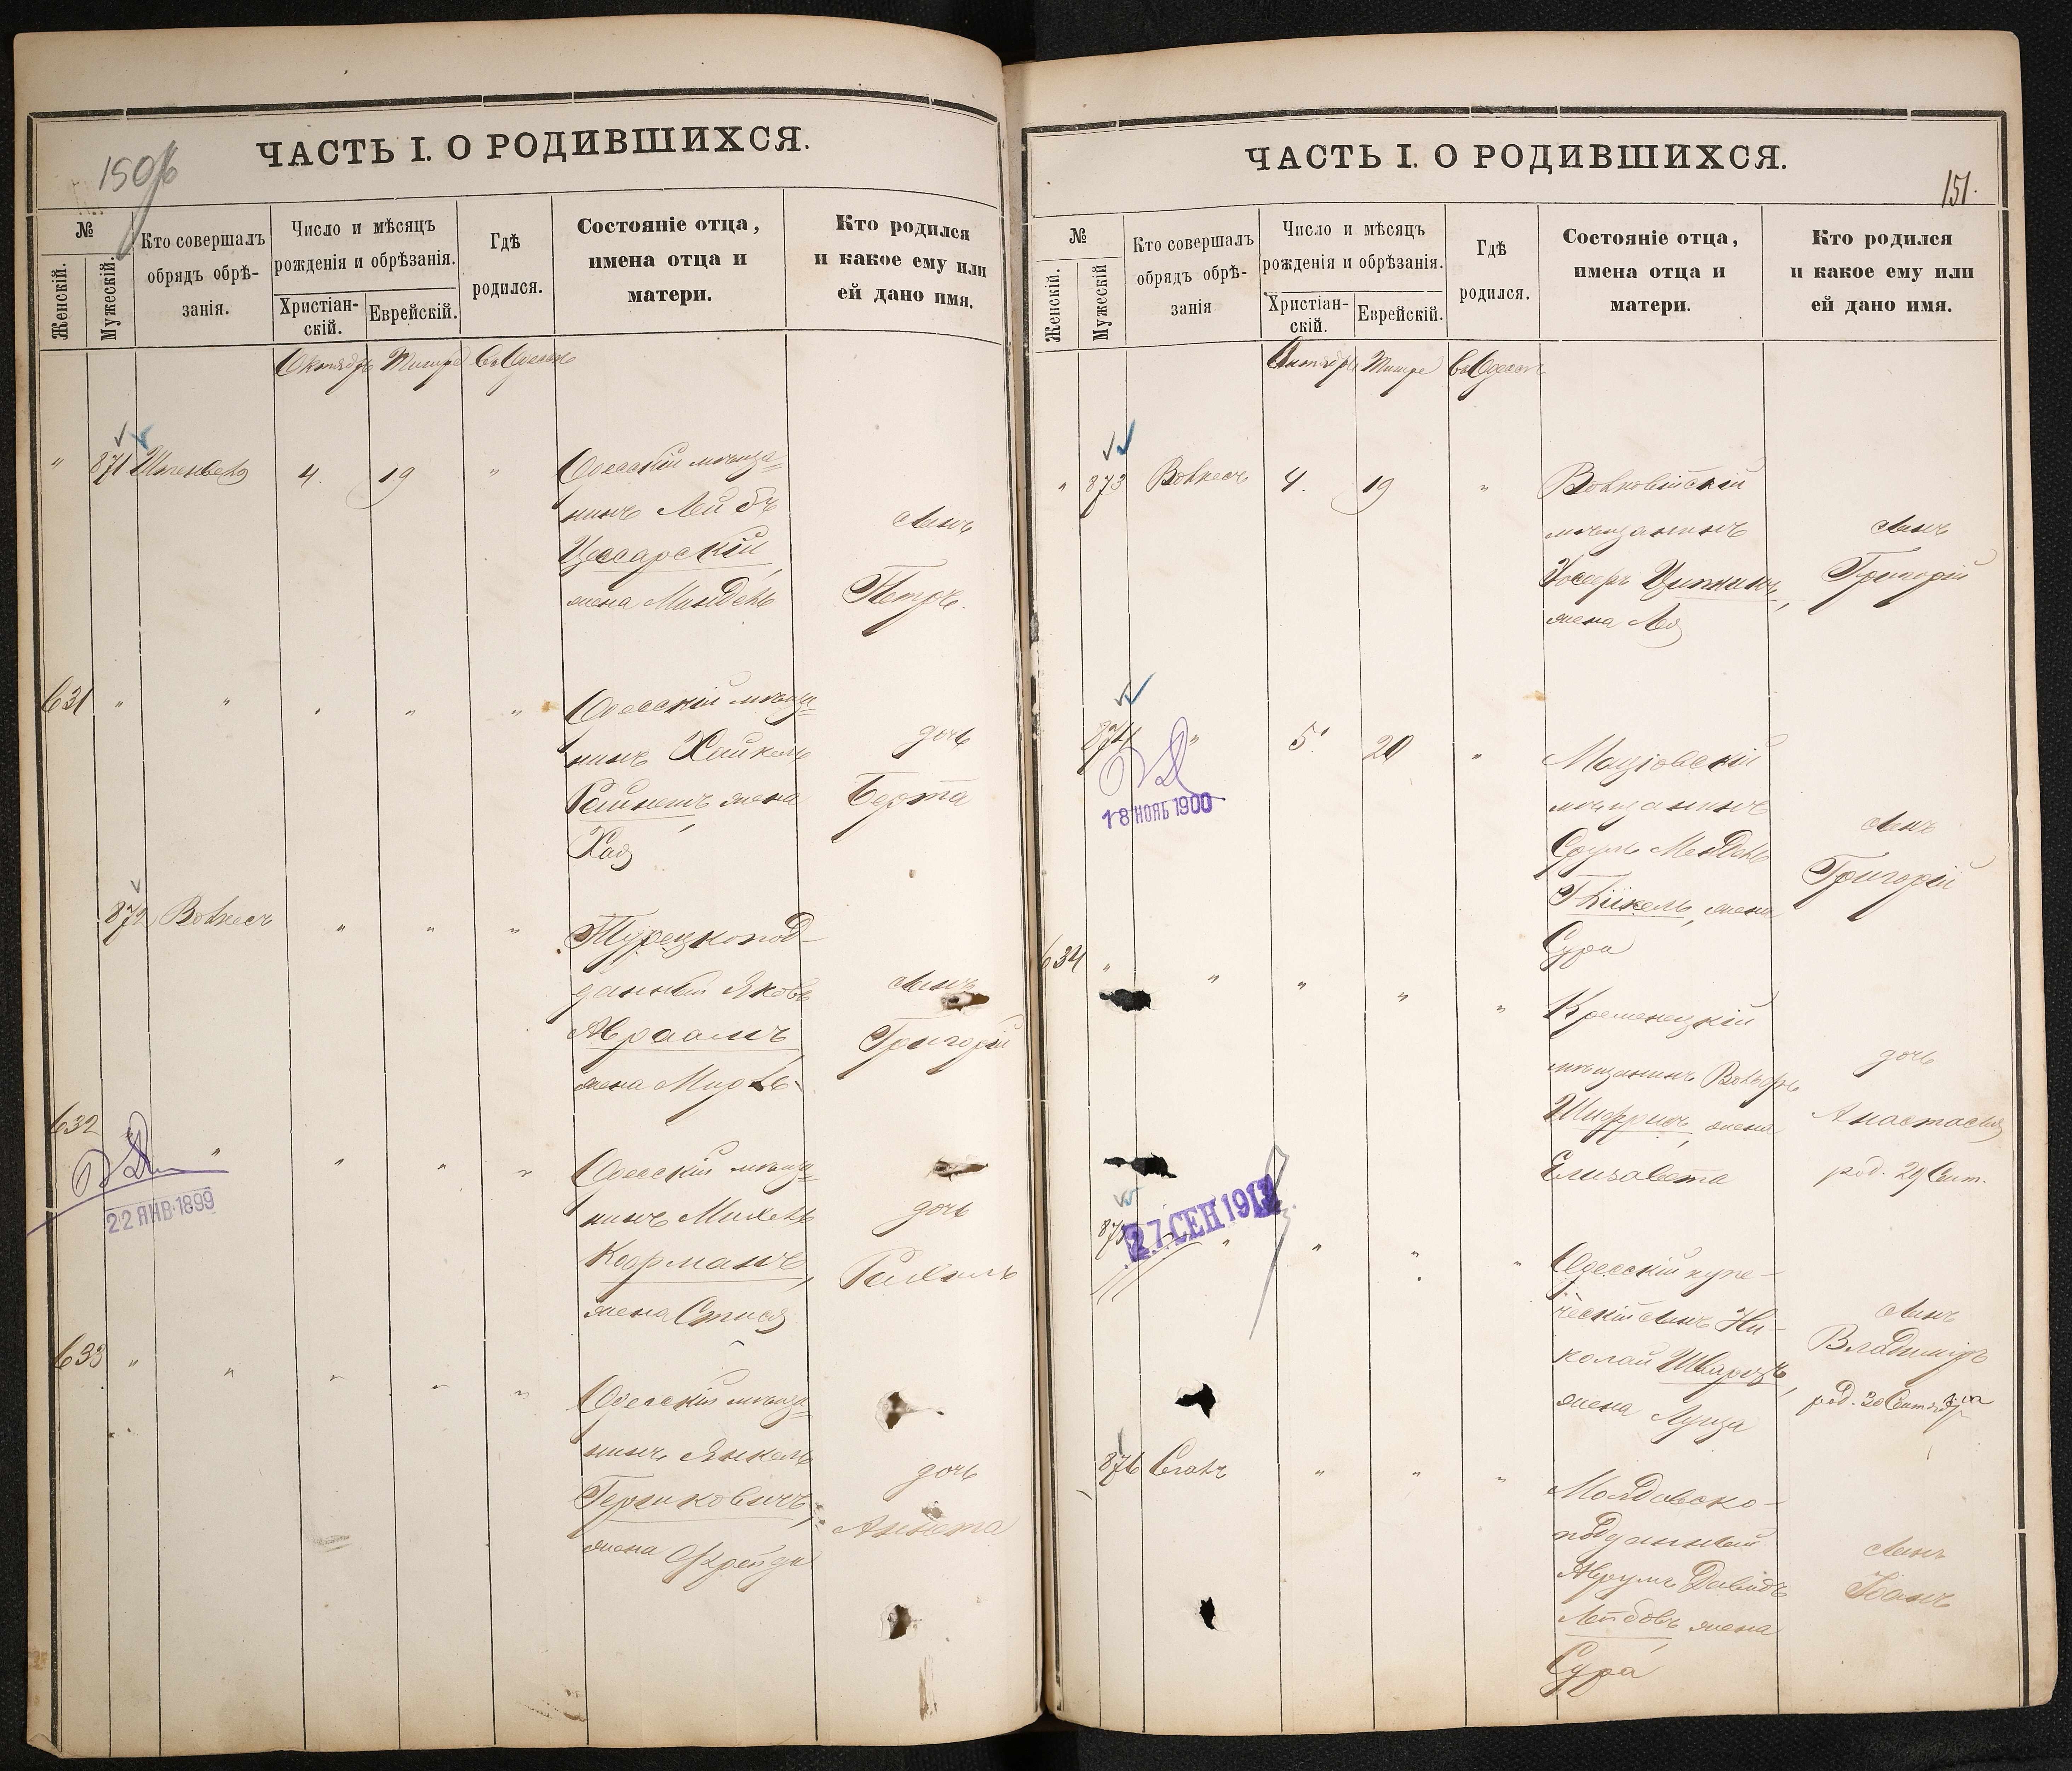 150
ЧАСТЬ I. О РОДИВШИХСЯ.
№
Женскій.
Мужескій.
Кто совершалъ
обрядъ обрѣ-
занія.
Число и мѣсяцъ
рожденія и обрѣзанія.
Христіан-
скій.
Еврейскій.
Гдѣ
родился.
Состояніе отца,
имена отца и
матери.
Кто родился
и какое ему или
ей дано имя.
Октябрь Тишре Въ Одессѣ
" 871 4. 19 "
Одесскій мѣща=
нинъ Лейбъ
Цесарскій,
жена Миндель
сынъ
Петръ.
631 " " " " "
Одесскій мѣща=
нинъ Хайкель
жена
Хая
дочь
Берта
872 " " "
Турецкопод-
данный Яковъ
Авраамъ,
жена
сынъ
Григорій
632 " " " "
22 ЯНВ 1899
Одесскій мѣща=
нинъ Михель
Кофманъ,
жена
дочь
Рахиль
633 " " " " "
Одесскій мѣща=
нинъ Янкель
Гершковичъ,
жена Фрейда
дочь
Аннета
ЧАСТЬ I. О РОДИВШИХСЯ.
151.
№
Женскій.
Мужескій
Кто совершалъ
обрядъ обрѣ-
занія
Число и мѣсяцъ
рожденія и обрѣзанія.
Христіан-
скій.
Еврейскій.
Гдѣ
родился.
Состояніе отца,
имена отца и
матери.
Кто родился
и какое ему или
ей дано имя.
Октябрь Тишре Въ Одессѣ
" 873 4. 19 "
мѣщанинъ
Іосифъ Ципкинъ,
жена Лея
сынъ
Григорій
874 " 5. 20 "
18 НОЯБ 1900
Маціовскій
мѣщанинъ
Сруль Мендель
жена
Сура
сынъ
Григорій
634 " " " " "
Кременецкій
мѣщанинъ Вольфъ
Шифринъ, жена
Елизавета
дочь
Анастасія
род. 29 Сент.
875 " " " "
27 СЕН 1912
Одесскій купе-
ческій сынъ Ни-
колай Шварцъ,
жена Луиза
сынъ
Владиміръ
род. 30 Сентября
876 " " "
Молдавско-
подданный
Аврумъ Давидъ
Лейбовъ, жена
Сура
сынъ
Іоанъ